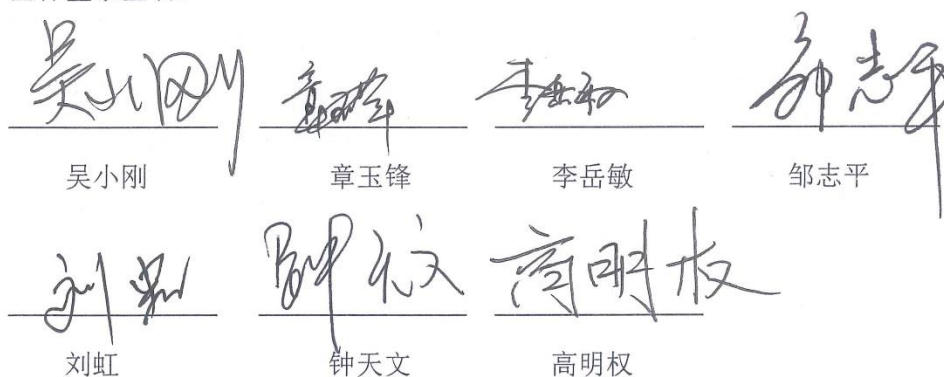 吴小刚 章玉锋 李岳敏 邹志平
吴小刚 章玉锋 李岳敏 邹志平
刘虹 钟天文 高明权
刘虹 钟天文 高明权